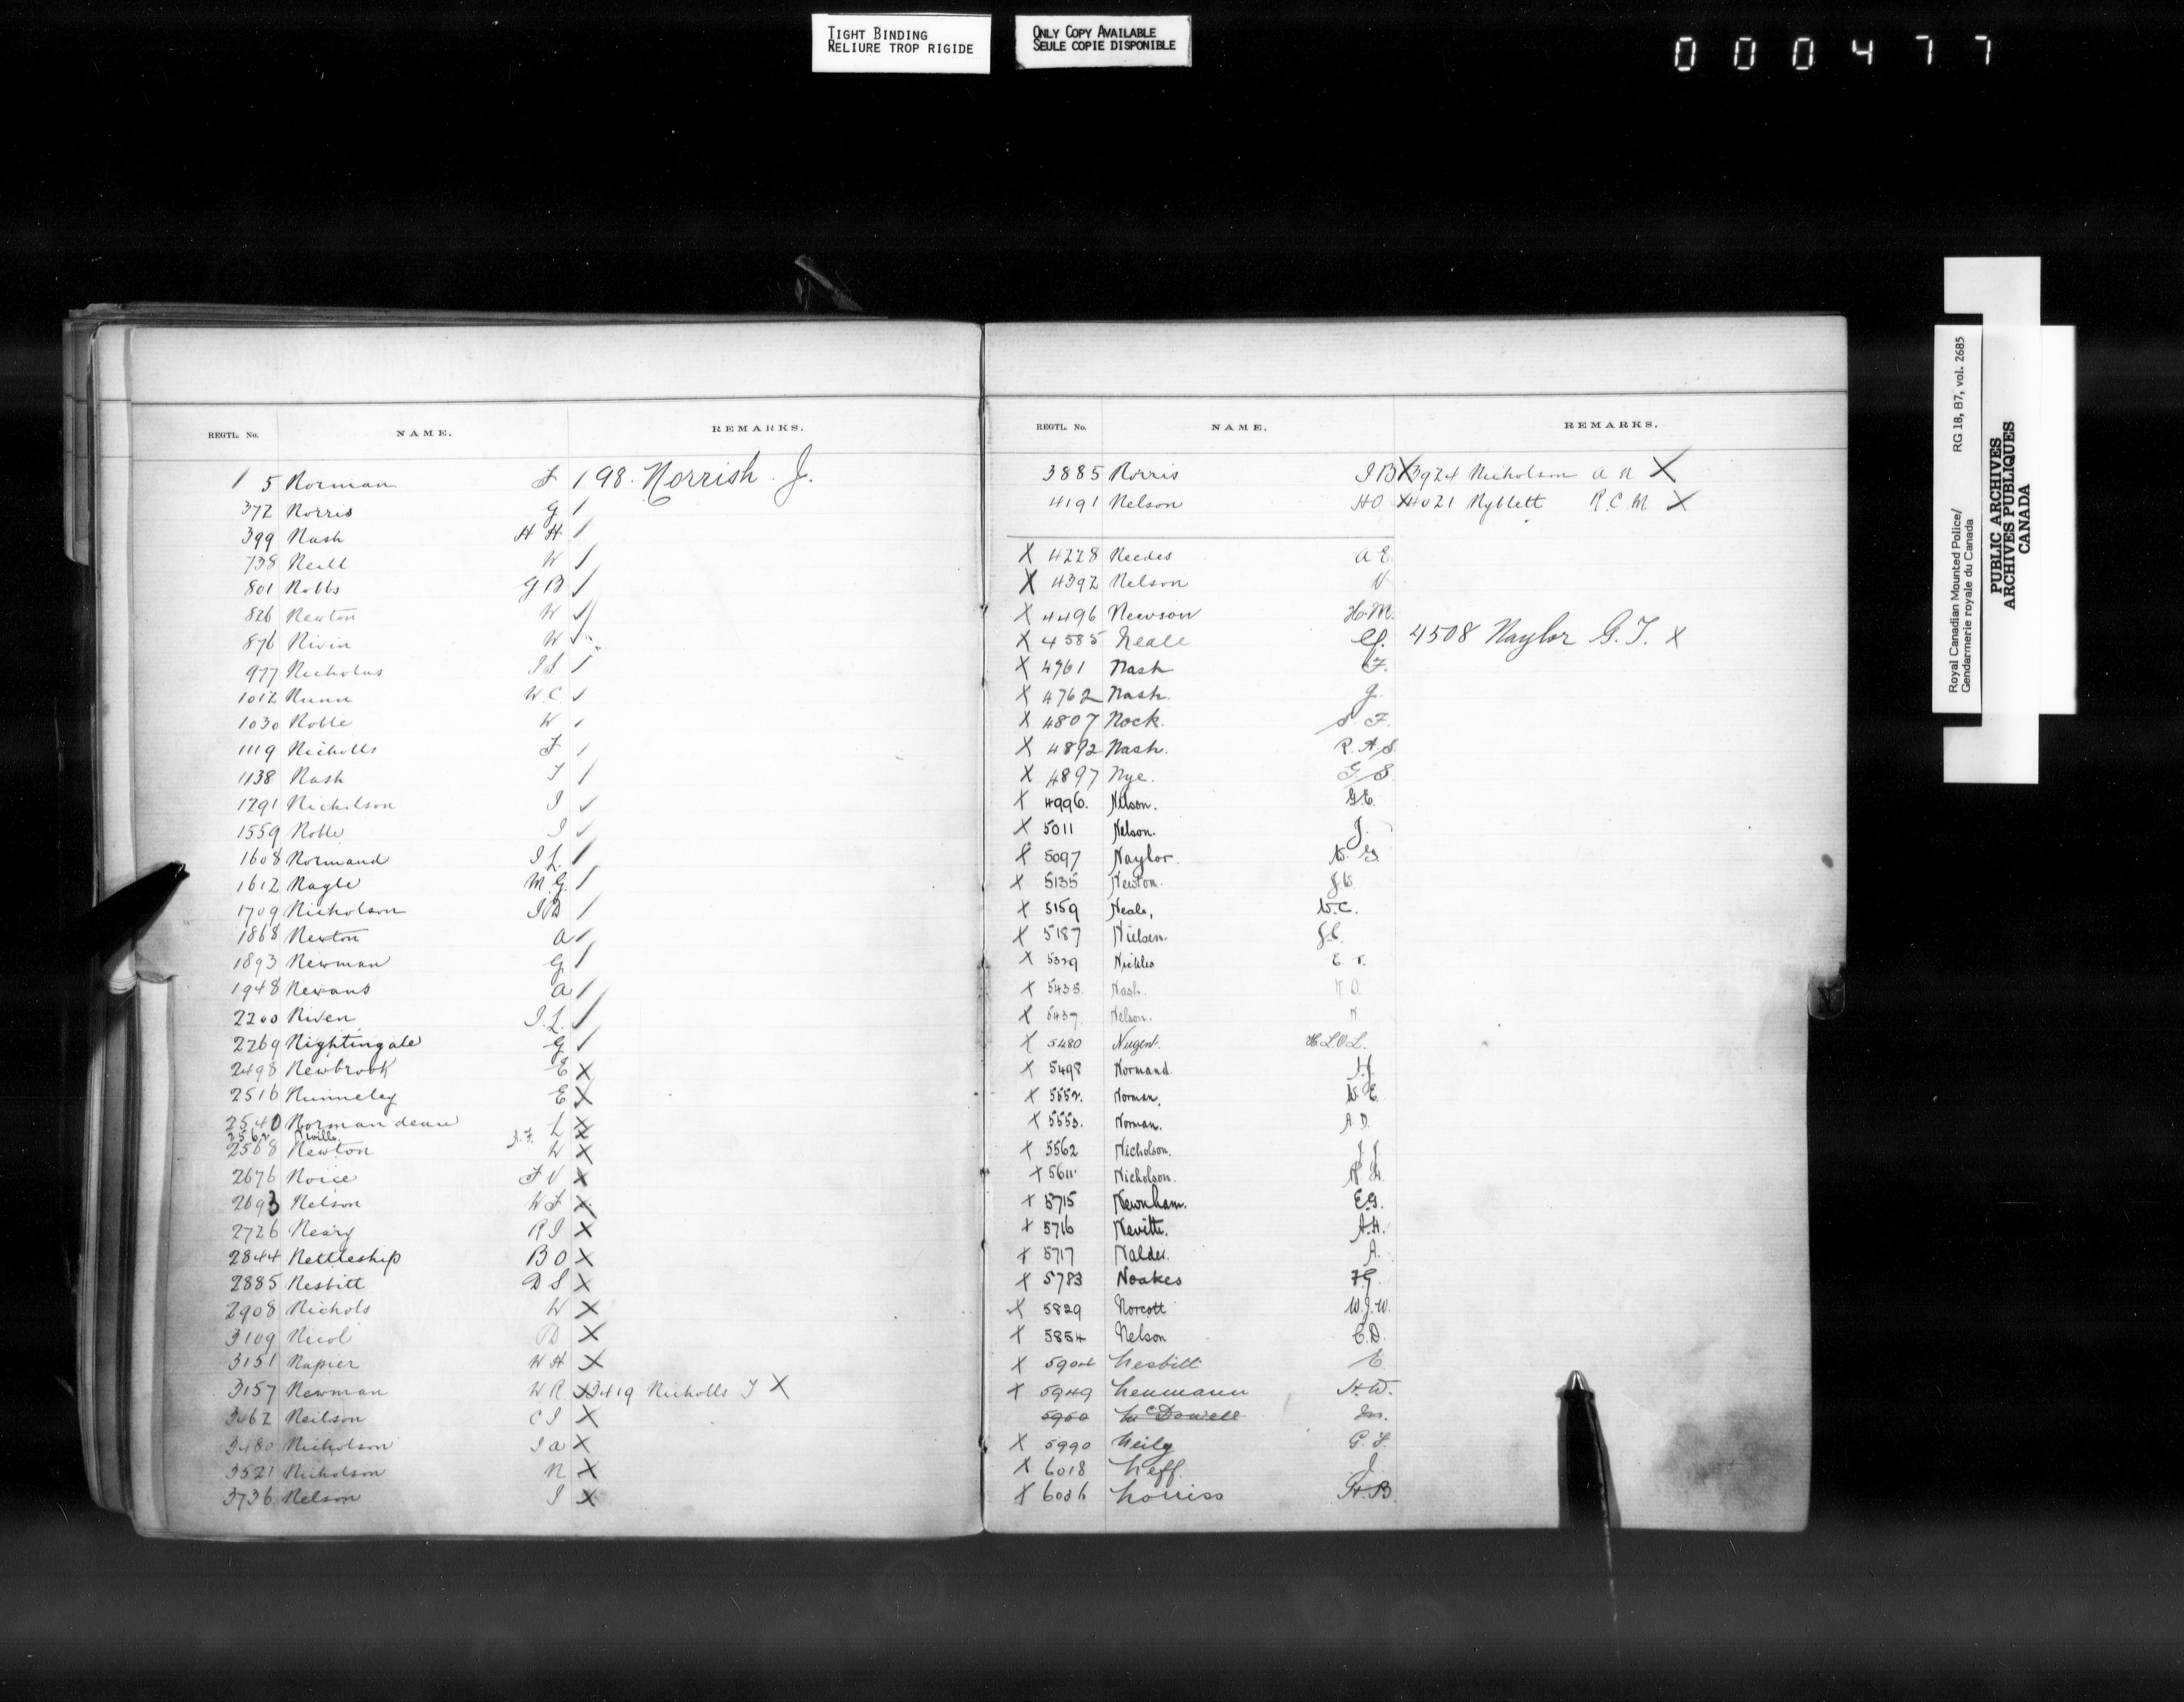 TIGHT BINDING
RELIURE TROP RIGIDE
ONLY COPY AVAILABLE
SEULE COPIE DISPONIBLE
000477
REGTL. No. NAME. REMARKS.
5 Norman F / 98. Norrish. J.
372 Norris G /
399 Nash H H /
738 Neill W /
801 Nobbs G B /
826 Newton W ✓
876 Nivin W ✓
977 Nicholas /
1012 Nunn W. C ✓
1030 Noble W ✓
1119 Nicholls F /
1138 Nash T /
1291 Nicholson J ✓
1559 Noble J ✓
1608 Normand J L. /
1612 Nagle M. G. /
1709 Nicholson J B /
1868 Newton A ✓
1893 Newman G /
1948 Newans A /
2200 Niven J. L. /
2269 Nightingale G /
2498 Newbrook E X
2516 Nunneley E X
2540 Normandeau L X
2562 Neville J. F. X
2568 Newton W X
2676 Noice F V X
2693 Nelson W F X
2726 Neary R J X
2844 Nettleship B O X
2885 Nesbitt D S X
2908 Nichols W X
3109 Nicol D X
3151 Napier W H X
3157 Newman W. R. X 3419 Nicholls T X
3462 Neilson C J X
3480 Nicholson J A X
3521 Nicholson N X
3736 Nelson J X
REGTL. No. NAME. REMARKS.
3885 Norris J B X 3924 Nicholson A N X
4191 Nelson H O X 4021 Nyblett R. C. M. X
X 4228 Needes A E
X 4392 Nelson N
X 4496 Newson H. M.
X 4585 Neale 4508 Naylor G. T. X
X 4761 Nash F.
X 4762 Nash. J.
X 4807 Nock. S F.
X 4892 Nash. R. A. S.
X 4897 Nye. G. S.
X 4996. Nelson. G. E.
X 5011 Nelson. J.
X 5097 Naylor. W. G.
X 5135 Newton. J. W.
X 5159 Neale, W. C.
X 5187 Nielsen. J. C.
X 5329 Nickles E T.
X 5435. Nash.
X 5437. Nelson. N.
X 5480 Nugent. H. L. O'L.
X 5498 Normand H. J.
X 5552. Norman. W. E.
X 5553. Norman. A. D.
X 5562 Nicholson. J. J.
X 5611. Nicholson.
X 5715 Newnham. E. G.
X 5716 Nevitte. A. H.
X 5717 Nalder. A.
X 5783 Noakes F. G.
X 5829 Norcott W. J. W.
X 5854 Nelson C. D.
X 5904 Nesbitt E
X 5949 Neumann H. W.
5950 McDowell Jn.
X 5990 Neily G. F.
X 6018 Neff. J.
X 6036 Norriss H. B.
Royal Canadian Mounted Police/ RG 18, B7, vol. 2685
Gendarmerie royale du Canada
PUBLIC ARCHIVES
ARCHIVES PUBLIQUES
CANADA